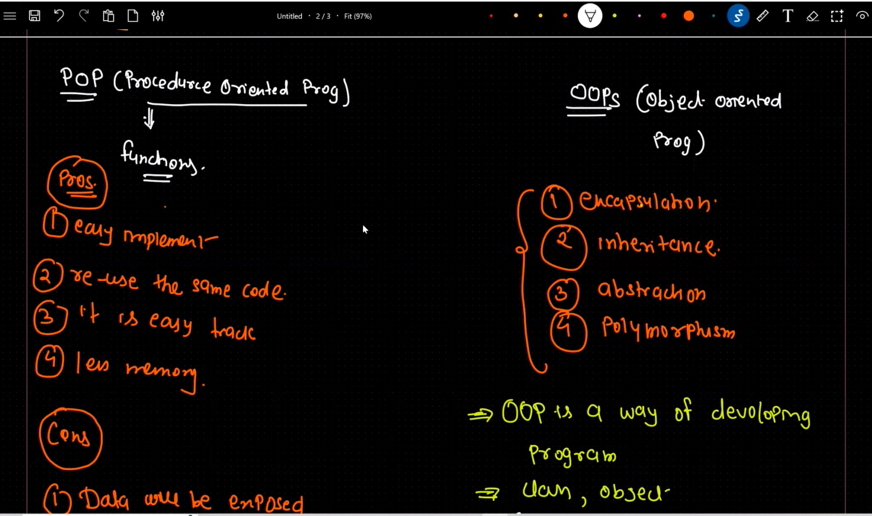 Untitled • 2 / 3 • Fit (97%)
POP (Procedurce Oriented Prog)
functions.
Pros.
1 easy implement
2 re-use the same code.
3 it is easy track
4 less memory.
Cons
(1) Data will be exposed
OOPs (Object oriented
Prog)
1 encapsulation.
2 inheritance.
3 abstraction
4 Polymorphism
⇒ OOP is a way of developing
program
⇒ class, object